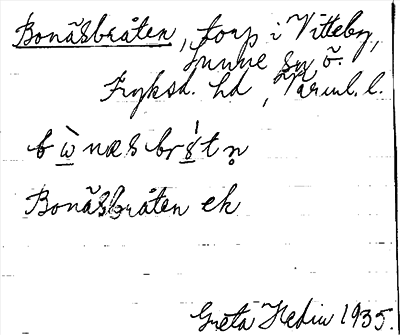 Bonäsbråten, torp i Vitteby,
Sunne sn ö.
Fryksd. hd, Värml. l.
b ù næsbråt n̥
Bonäsbråten ek
Greta Hedin 1935.